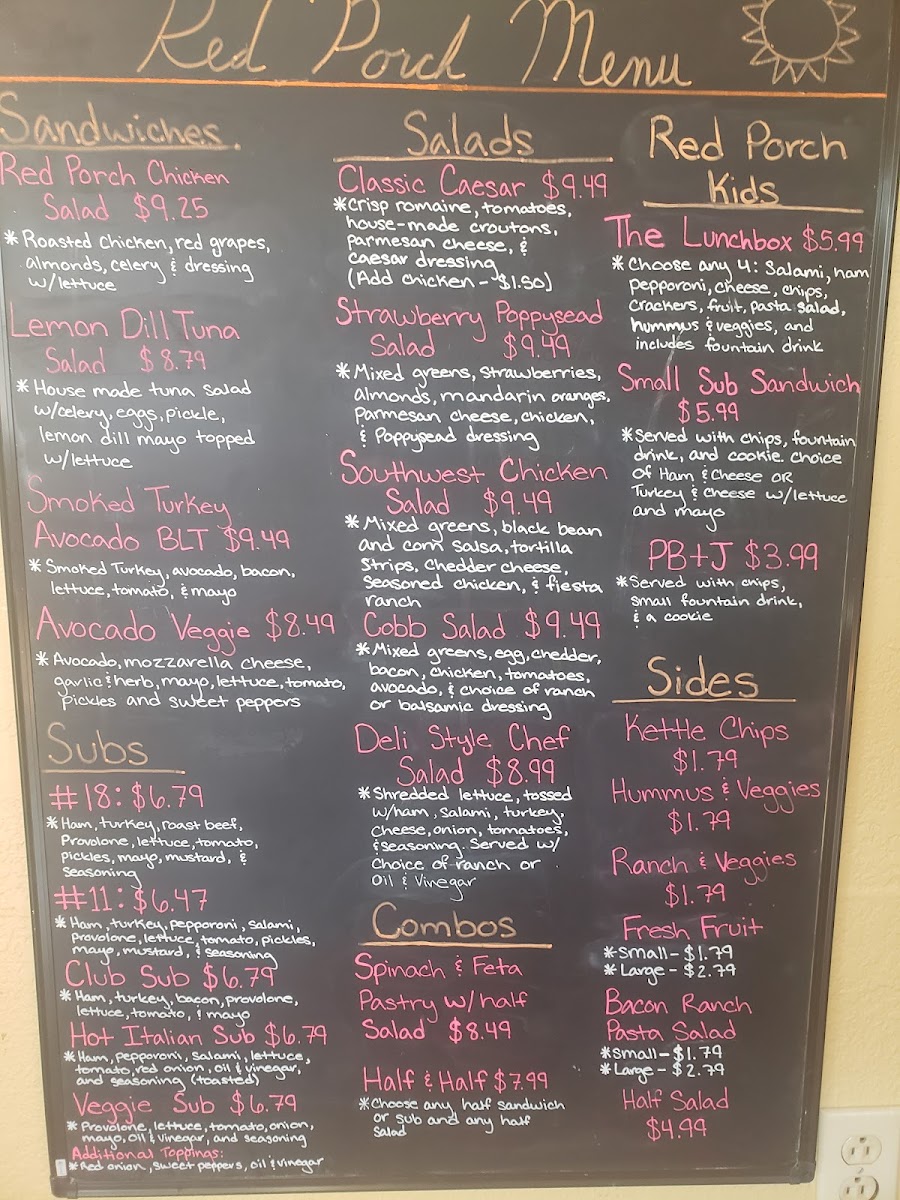 Red Porch Menu
Sandwiches
Red Porch Chicken
Salad $9.25
* Roasted chicken, red grapes,
almonds, celery & dressing
w/lettuce
Lemon Dill Tuna
Salad $8.79
* House made tuna salad
w/celery, eggs, pickle,
lemon dill mayo topped
w/lettuce
Smoked Turkey
Avocado BLT $9.49
* Smoked Turkey, avocado, bacon,
lettuce, tomato, & mayo
Avocado Veggie $8.49
* Avocado, mozzarella cheese,
garlic & herb, mayo, lettuce, tomato,
pickles and sweet peppers
Subs
#18: $6.79
* Ham, turkey, roast beef,
Provolone, lettuce, tomato,
pickles, mayo, mustard, &
seasoning
#11: $6.47
* Ham, turkey, pepperoni, salami,
provolone, lettuce, tomato, pickles,
mayo, mustard, & seasoning
Club Sub $6.79
* Ham, turkey, bacon, provolone,
lettuce, tomato, & mayo
Hot Italian Sub $6.79
* Ham, pepperoni, salami, lettuce,
tomato, red onion, oil & vinegar,
and seasoning (toasted)
Veggie Sub $6.79
* Provolone, lettuce, tomato, onion,
mayo, oil & vinegar, and seasoning
Additional Toppings:
* Red onion, sweet peppers, oil & vinegar
Salads
Classic Caesar $9.49
* Crisp romaine, tomatoes,
house-made croutons,
parmesan cheese, &
caesar dressing
(Add chicken - $1.50)
Strawberry Poppysead
Salad $9.49
* Mixed greens, strawberries,
almonds, mandarin oranges,
parmesan cheese, chicken,
& Poppysead dressing
Southwest Chicken
Salad $9.49
* Mixed greens, black bean
and corn salsa, tortilla
strips, chedder cheese,
seasoned chicken, & fiesta
ranch
Cobb Salad $9.49
* Mixed greens, egg, chedder,
bacon, chicken, tomatoes,
avocado, & choice of ranch
or balsamic dressing
Deli Style Chef
Salad $8.99
* Shredded lettuce, tossed
w/ham, salami, turkey,
cheese, onion, tomatoes,
& seasoning. Served w/
choice of ranch or
Oil & Vinegar
Combos
Spinach & Feta
Pastry w/half
Salad $8.49
Half & Half $7.99
* Choose any half sandwich
or sub and any half
salad
Red Porch
Kids
The Lunchbox $5.99
* Choose any 4: Salami, ham
pepperoni, cheese, chips,
crackers, fruit, pasta salad,
hummus & veggies, and
includes fountain drink
Small Sub Sandwich
$5.99
* Served with chips, fountain
drink, and cookie. choice
of Ham & Cheese OR
Turkey & Cheese w/lettuce
and mayo
PB+J $3.99
* Served with chips,
small fountain drink,
& a cookie
Sides
Kettle Chips
$1.79
Hummus & Veggies
$1.79
Ranch & Veggies
$1.79
Fresh Fruit
* Small - $1.79
* Large - $2.79
Bacon Ranch
Pasta Salad
* Small - $1.79
* Large - $2.79
Half Salad
$4.99